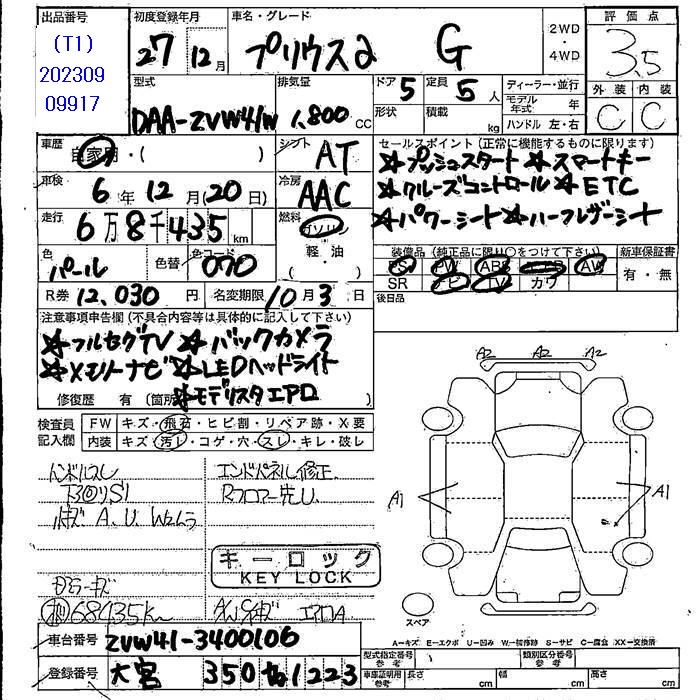 出品番号 初度登録年月 車名・グレード 2WD・4WD 評価点
(T1) 202309 09917
27年12月 プリウスα G 3.5
型式 排気量 ドア 定員 ディーラー・並行 外装 内装
DAA-ZVW41W 1,800cc 5 5人 モデル年式 年 C C
形状 積載 kg ハンドル 左・右
車歴 自家用・( ) シフト AT
セールスポイント(正常に機能するものに限ります)
☆プッシュスタート ☆スマートキー
☆クルーズコントロール ☆ETC
☆パワーシート ☆ハーフレザーシート
車検 6年12月(20日) 冷房 AAC
走行 6万8千435km 燃料 ガソリン・軽油・( )
色 パール 色替 色コード 070
装備品(純正品に限り○をつけて下さい) 新車保証書
PS PW ABS AW 有・無
SR ナビ TV カワ
R券 12,030円 名変期限 10月3日 後日品
注意事項申告欄(不具合内容等は具体的に記入して下さい)
☆フルセグTV ☆バックカメラ
☆メモリーナビ ☆LEDヘッドライト
☆モデリスタエアロ
修復歴 有(箇所
検査員記入欄 FW キズ・飛石・ヒビ割・リペア跡・X要
内装 キズ・汚レ・コゲ・穴・スレ・キレ・破レ
ハンドルスレ エンドパネル修正
下回りS1 Rフロアー先U
A.U.Wムラ
キーロック
KEY LOCK
68435km エアロA
A2 A2 A2
A1 A1
スペア
A=キズ E=エクボ U=凹み W=補修跡 S=サビ C=腐食 XX=交換済
車台番号 ZVW41-3400106
登録番号 大宮 350 1223
型式指定番号 参考 類別区分番号 参考
車庫証明用 参考 長さ cm 幅 cm 高さ cm